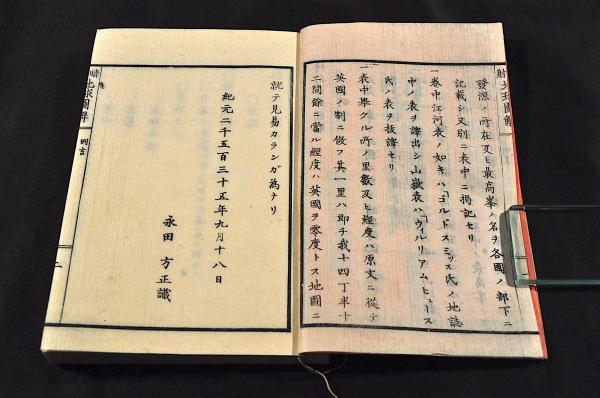 發源ノ所在及ヒ最高峯ノ名ヲ各國ノ部下ニ
記載シ又別ニ表中ニ掲記セリ
一卷中江河表ノ如キハゴールドスミッス氏ノ地誌
中ノ表ヲ譯出シ山嶽表ハウィルリアムヒュース
氏ノ表ヲ抜譯セリ
一表中舉クル所ノ里數及ヒ經度ハ原文ニ從テ
英國ノ制ニ倣フ其一里ハ即チ我十四丁半十
二間餘ニ當ル經度ハ英國ヲ零度トス地圖ニ
就テ見易カランガ為ナリ
紀元二千五百三十五年九月十八日
永田方正識
地球圖解
例言
二